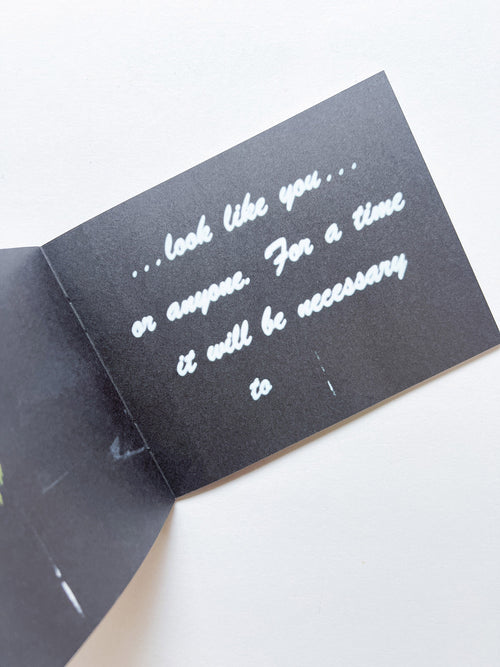 ...look like you...
or anyone. For a time
it will be necessary
to